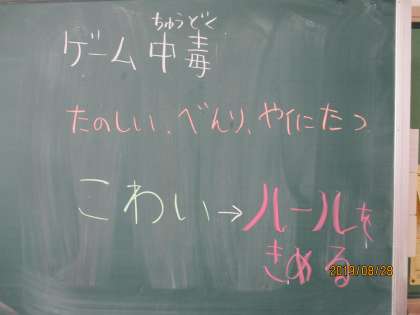 ちゅうどく
ゲーム中毒
たのしい、べんり、やくにたつ
こわい→ルールを
きめる
2019/08/28